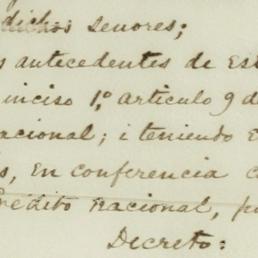 dichos señores;
s antecedentes de Est
inciso 1º, articulo 9 d
acional; i teniendo e
s, en conferencia c
rédito nacional, p
Decreto: